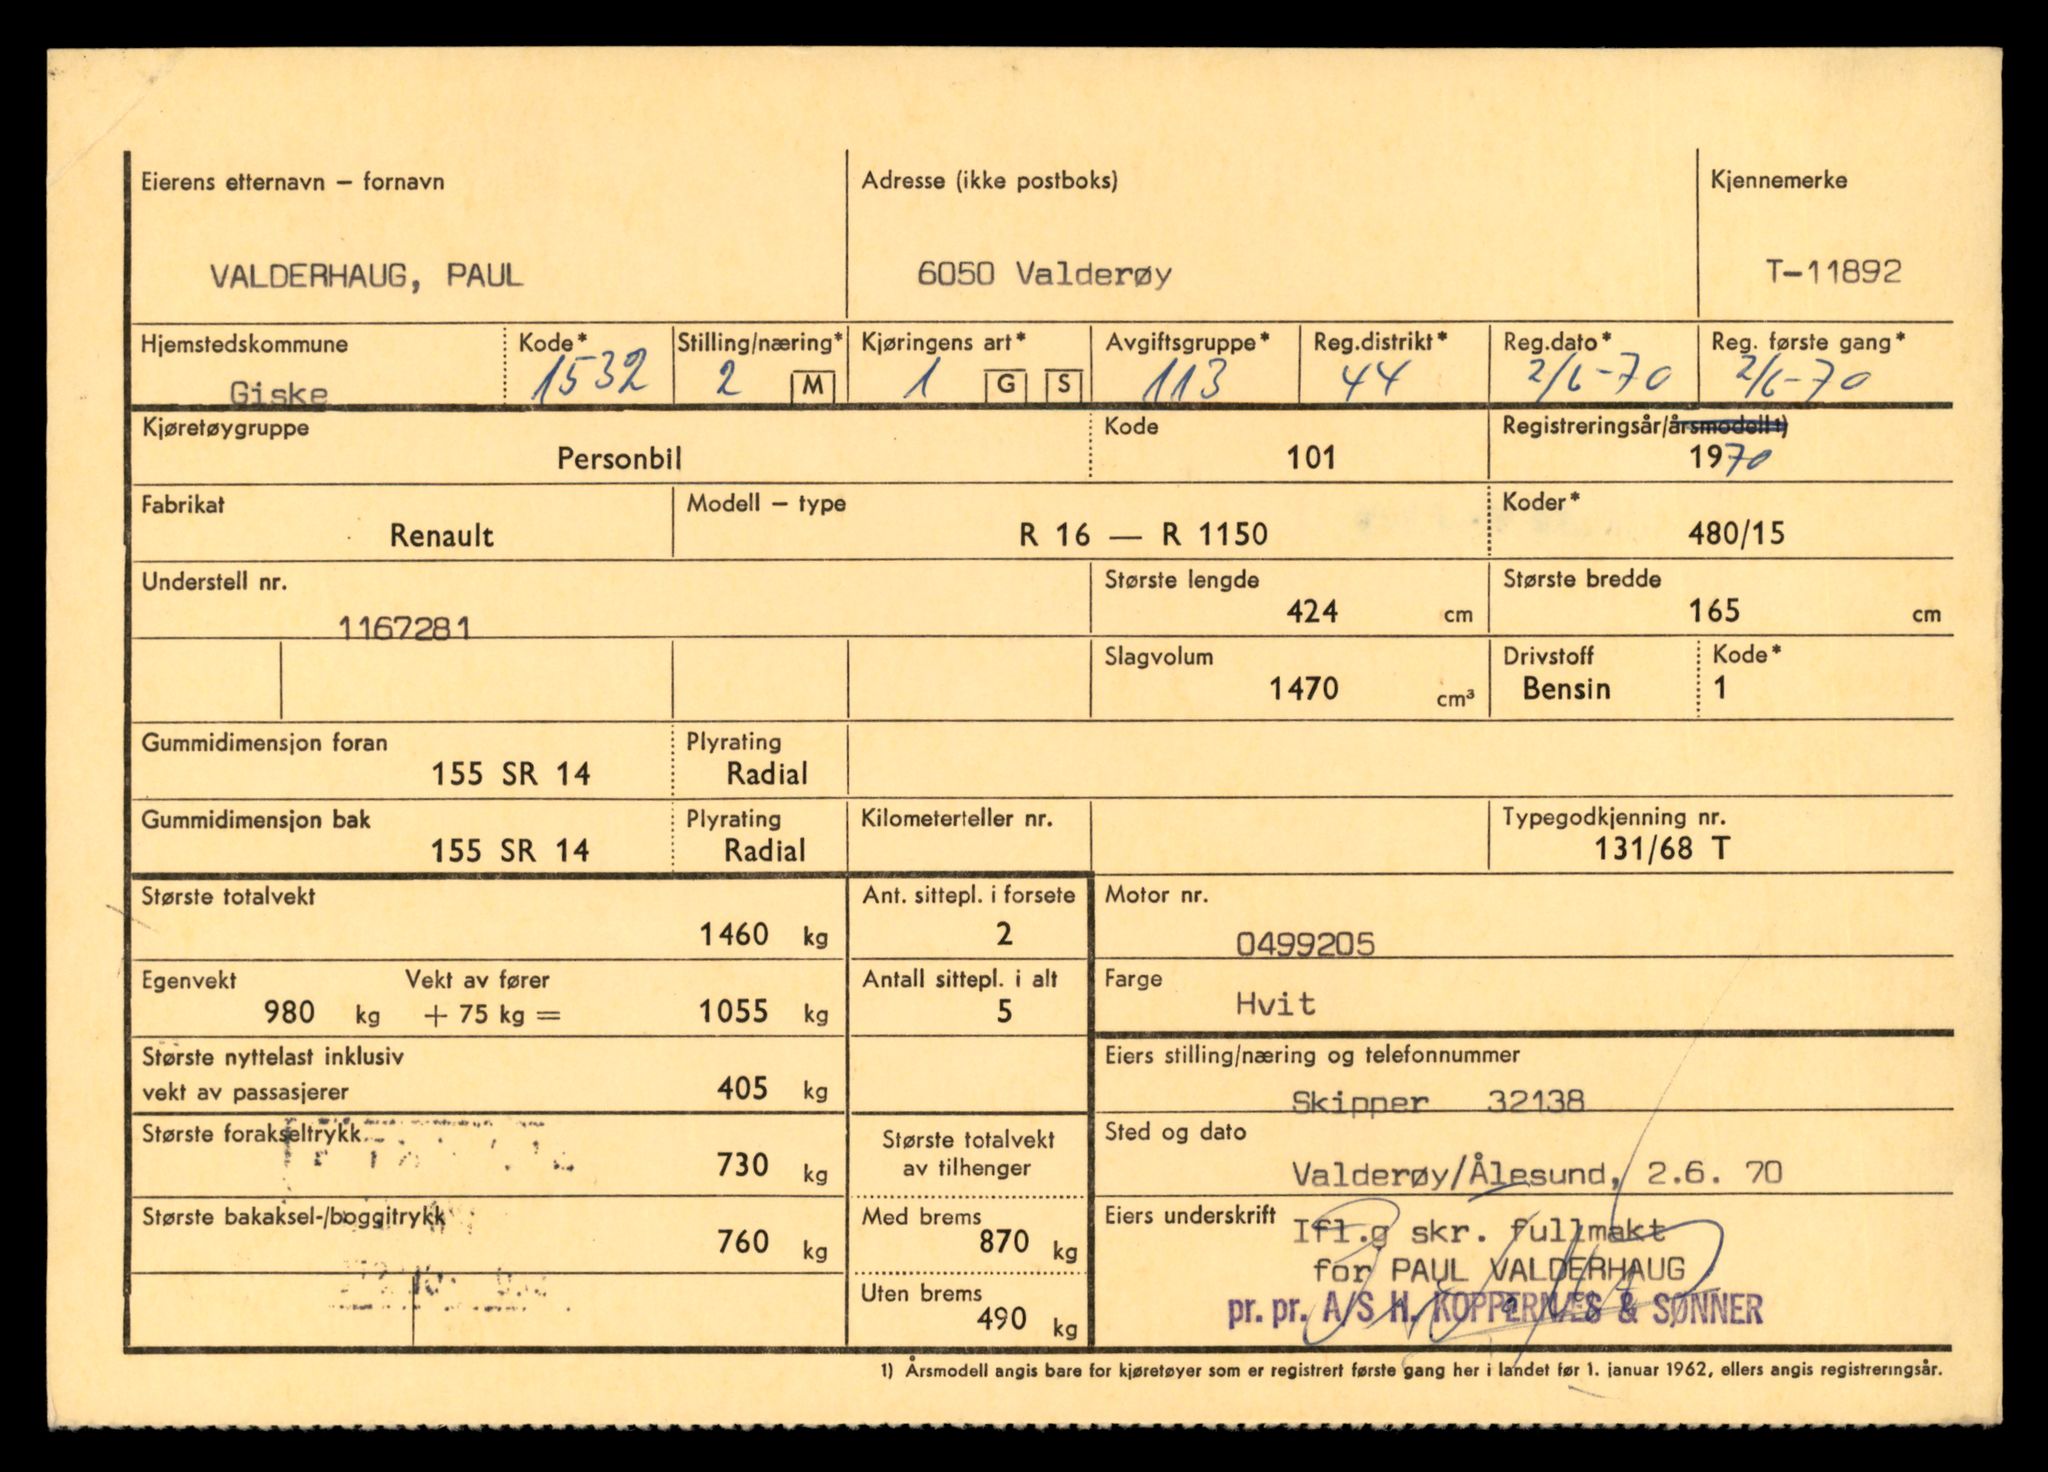 Eierens etternavn – fornavn
Adresse (ikke postboks)
Kjennemerke
VALDERHAUG, PAUL
6050 Valderøy
T-11892
Hjemstedskommune
Giske
Kode*
1532
Stilling/næring*
2 M
Kjøringens art*
1 G S
Avgiftsgruppe*
113
Reg.distrikt*
44
Reg.dato*
2/6-70
Reg. første gang*
2/6-70
Kjøretøygruppe
Personbil
Kode
101
Registreringsår/årsmodell 1)
1970
Fabrikat
Renault
Modell – type
R 16 — R 1150
Koder*
480/15
Understell nr.
1167281
Største lengde
424 cm
Største bredde
165 cm
Slagvolum
1470 cm³
Drivstoff
Bensin
Kode*
1
Gummidimensjon foran
155 SR 14
Plyrating
Radial
Gummidimensjon bak
155 SR 14
Plyrating
Radial
Kilometerteller nr.
Typegodkjenning nr.
131/68 T
Største totalvekt
1460 kg
Ant. sittepl. i forsete
2
Motor nr.
0499205
Egenvekt
980 kg
Vekt av fører
+ 75 kg =
1055 kg
Antall sittepl. i alt
5
Farge
Hvit
Største nyttelast inklusiv
vekt av passasjerer
405 kg
Eiers stilling/næring og telefonnummer
Skipper 32138
Største forakseltrykk
730 kg
Største totalvekt
av tilhenger
Sted og dato
Valderøy/Ålesund, 2.6. 70
Største bakaksel-/boggitrykk
760 kg
Med brems
870 kg
Uten brems
490 kg
Eiers underskrift
Ifl.g skr. fullmakt
for PAUL VALDERHAUG
pr. pr. A/S H. KOPPERNÆS & SØNNER
1) Årsmodell angis bare for kjøretøyer som er registrert første gang her i landet før 1. januar 1962, ellers angis registreringsår.